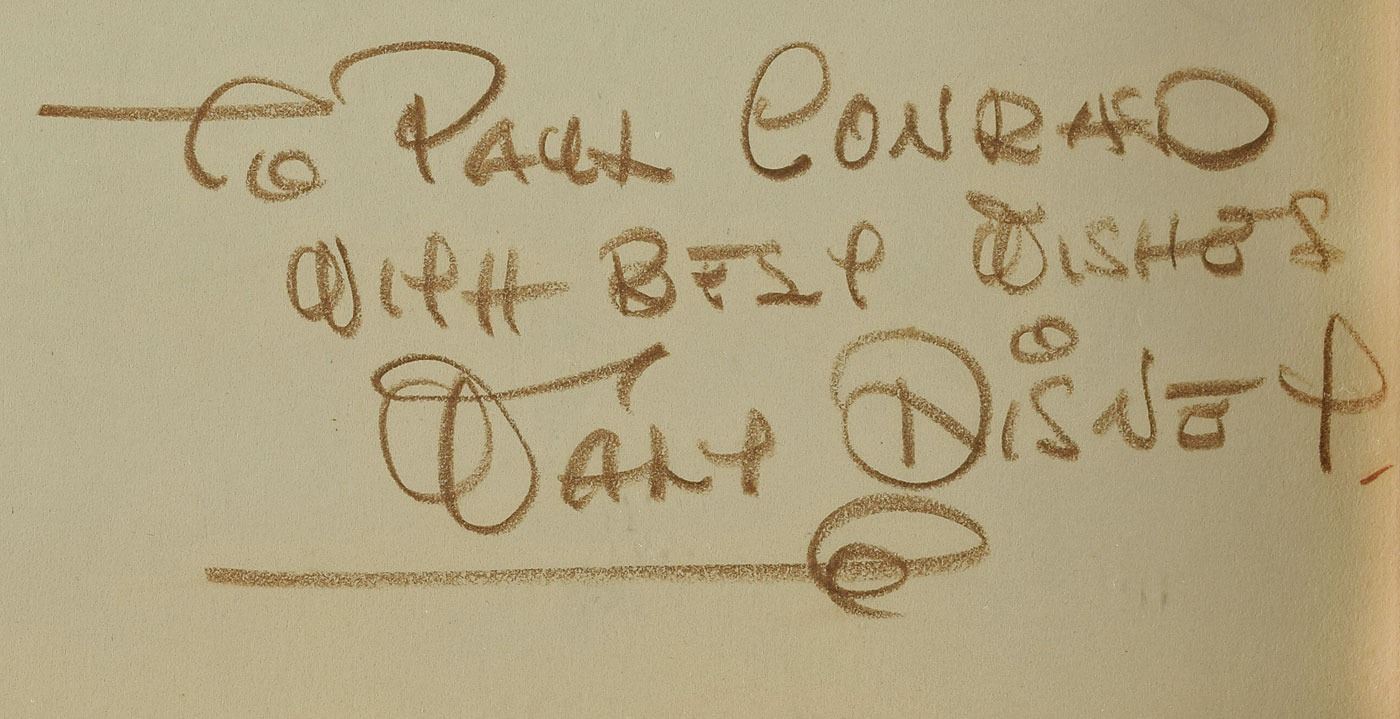 To Paul Conrad
With Best Wishes
Walt Disney